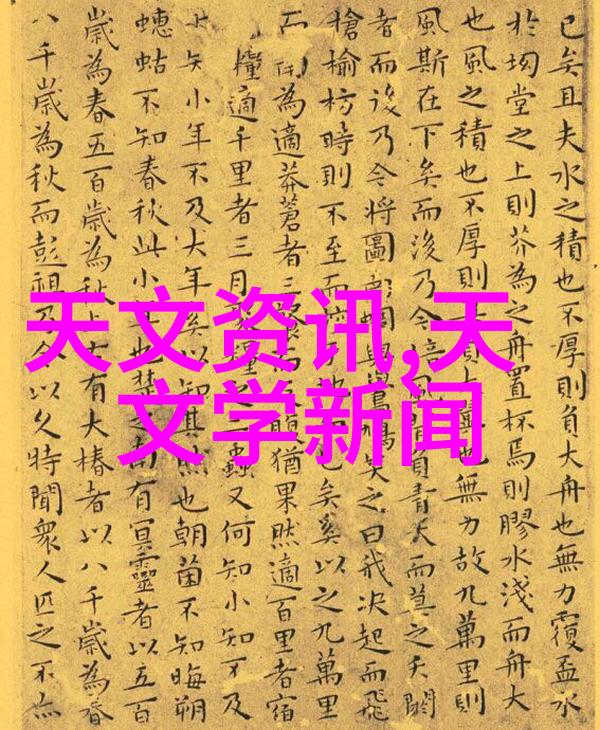 天文资讯,天
文学新闻
已矣且夫水之積也不厚則負大舟也無力覆盃水
於坳堂之上則芥為之舟置杯焉則膠水淺而舟大
也風之積也不厚則負大翼也無力故九萬里則
風斯在下矣而後乃今培風背負青天而莫之夭閼
者而後乃今將圖南蜩與鷽鳩笑之曰我決起而飛
槍榆枋時則不至而控地已矣奚以之九萬里
而南為適莽蒼者三而腹猶果然適百里者宿
糧適千里者三月聚糧之二蟲又何知小知不及
大知小年不及大年奚以知其然也朝菌不知晦朔
蟪蛄不知春秋此小年也楚之南有冥靈者以五百
歲為春五百歲為秋上古有大椿者以八千歲為春
八千歲為秋而彭祖乃今以久特聞衆人匹之不亦